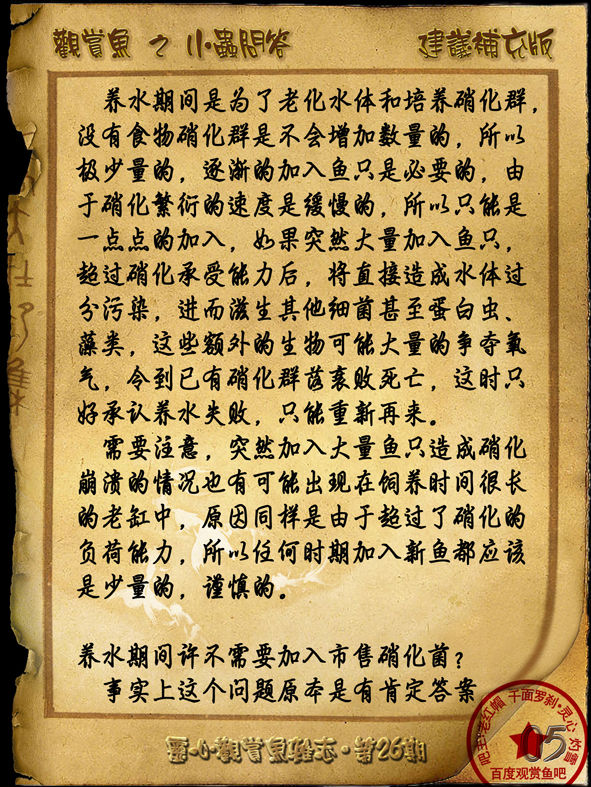 觀賞魚 之 小蟲問答
建議補充版
养水期间是为了老化水体和培养硝化群，
没有食物硝化群是不会增加数量的，所以
极少量的，逐渐的加入鱼只是必要的，由
于硝化繁衍的速度是缓慢的，所以只能是
一点点的加入，如果突然大量加入鱼只，
超过硝化承受能力后，将直接造成水体过
分污染，进而滋生其他细菌甚至蛋白虫、
藻类，这些额外的生物可能大量的争夺氧
气，令到已有硝化群落衰败死亡，这时只
好承认养水失败，只能重新再来。
需要注意，突然加入大量鱼只造成硝化
崩溃的情况也有可能出现在饲养时间很长
的老缸中，原因同样是由于超过了硝化的
负荷能力，所以任何时期加入新鱼都应该
是少量的，谨慎的。
养水期间许不需要加入市售硝化菌？
事实上这个问题原本是有肯定答案
靈·心觀賞魚雜志·第26期
吧主:老红帽 千面罗刹·灵心 灼雪
05
百度观赏鱼吧